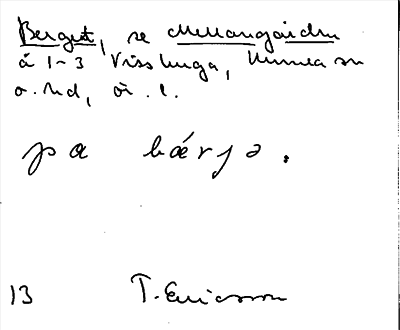 Berget, se Mellangården
å 1-3 Vissbunga, Kumla sn
o. hd, Ör. l.
pa bárjə.
13 T. Ericsson